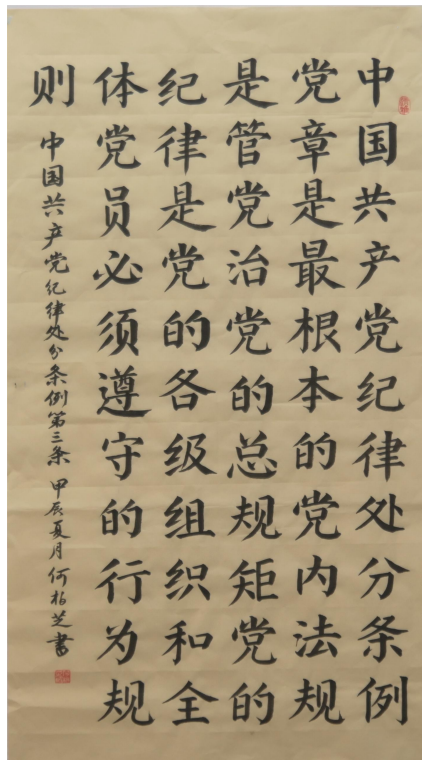 中国共产党纪律处分条例
党章是最根本的党内法规
是管党治党的总规矩党的
纪律是党的各级组织和全
体党员必须遵守的行为规
则
中国共产党纪律处分条例第三条 甲辰夏月何柏芝書